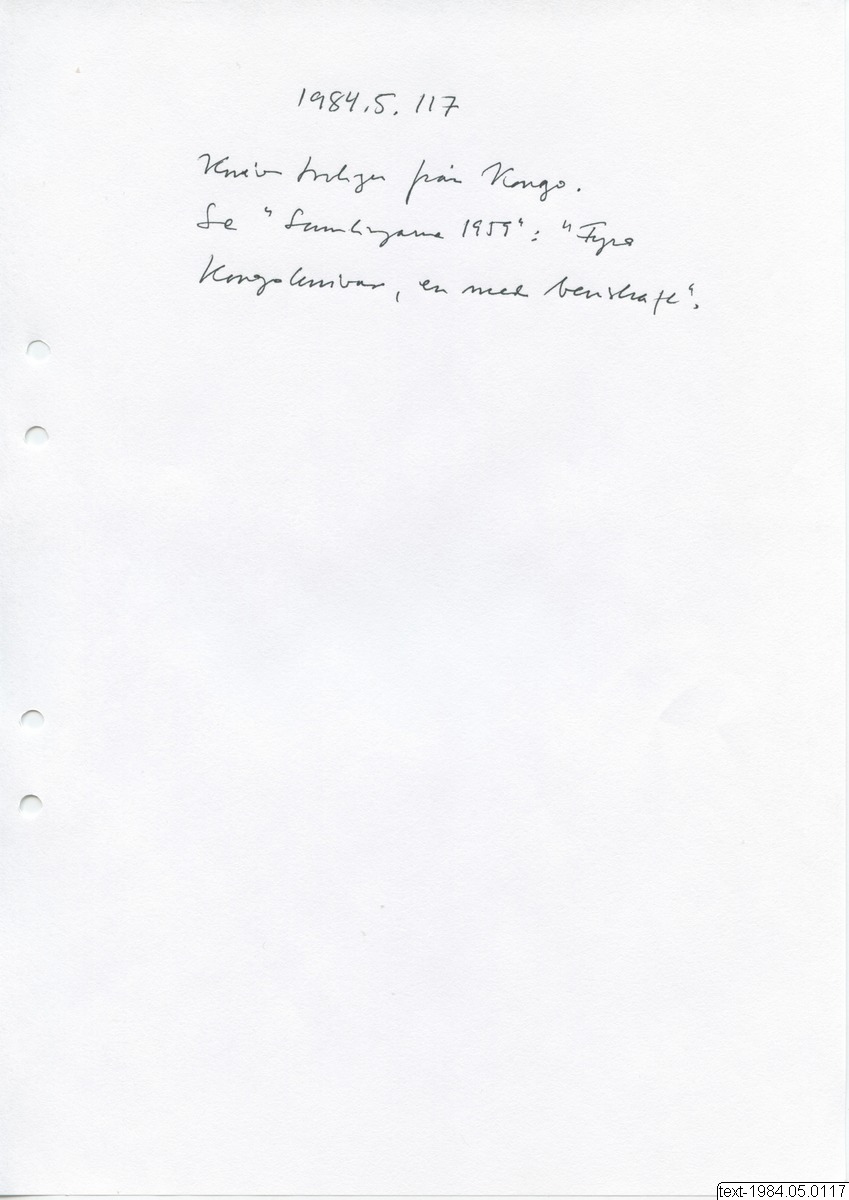 1984.5.117
Kniv troligen från Kongo.
Se "Samlingarna 1959": "Fyra
Kongoknivar, en med benskaft".
text-1984.05.0117